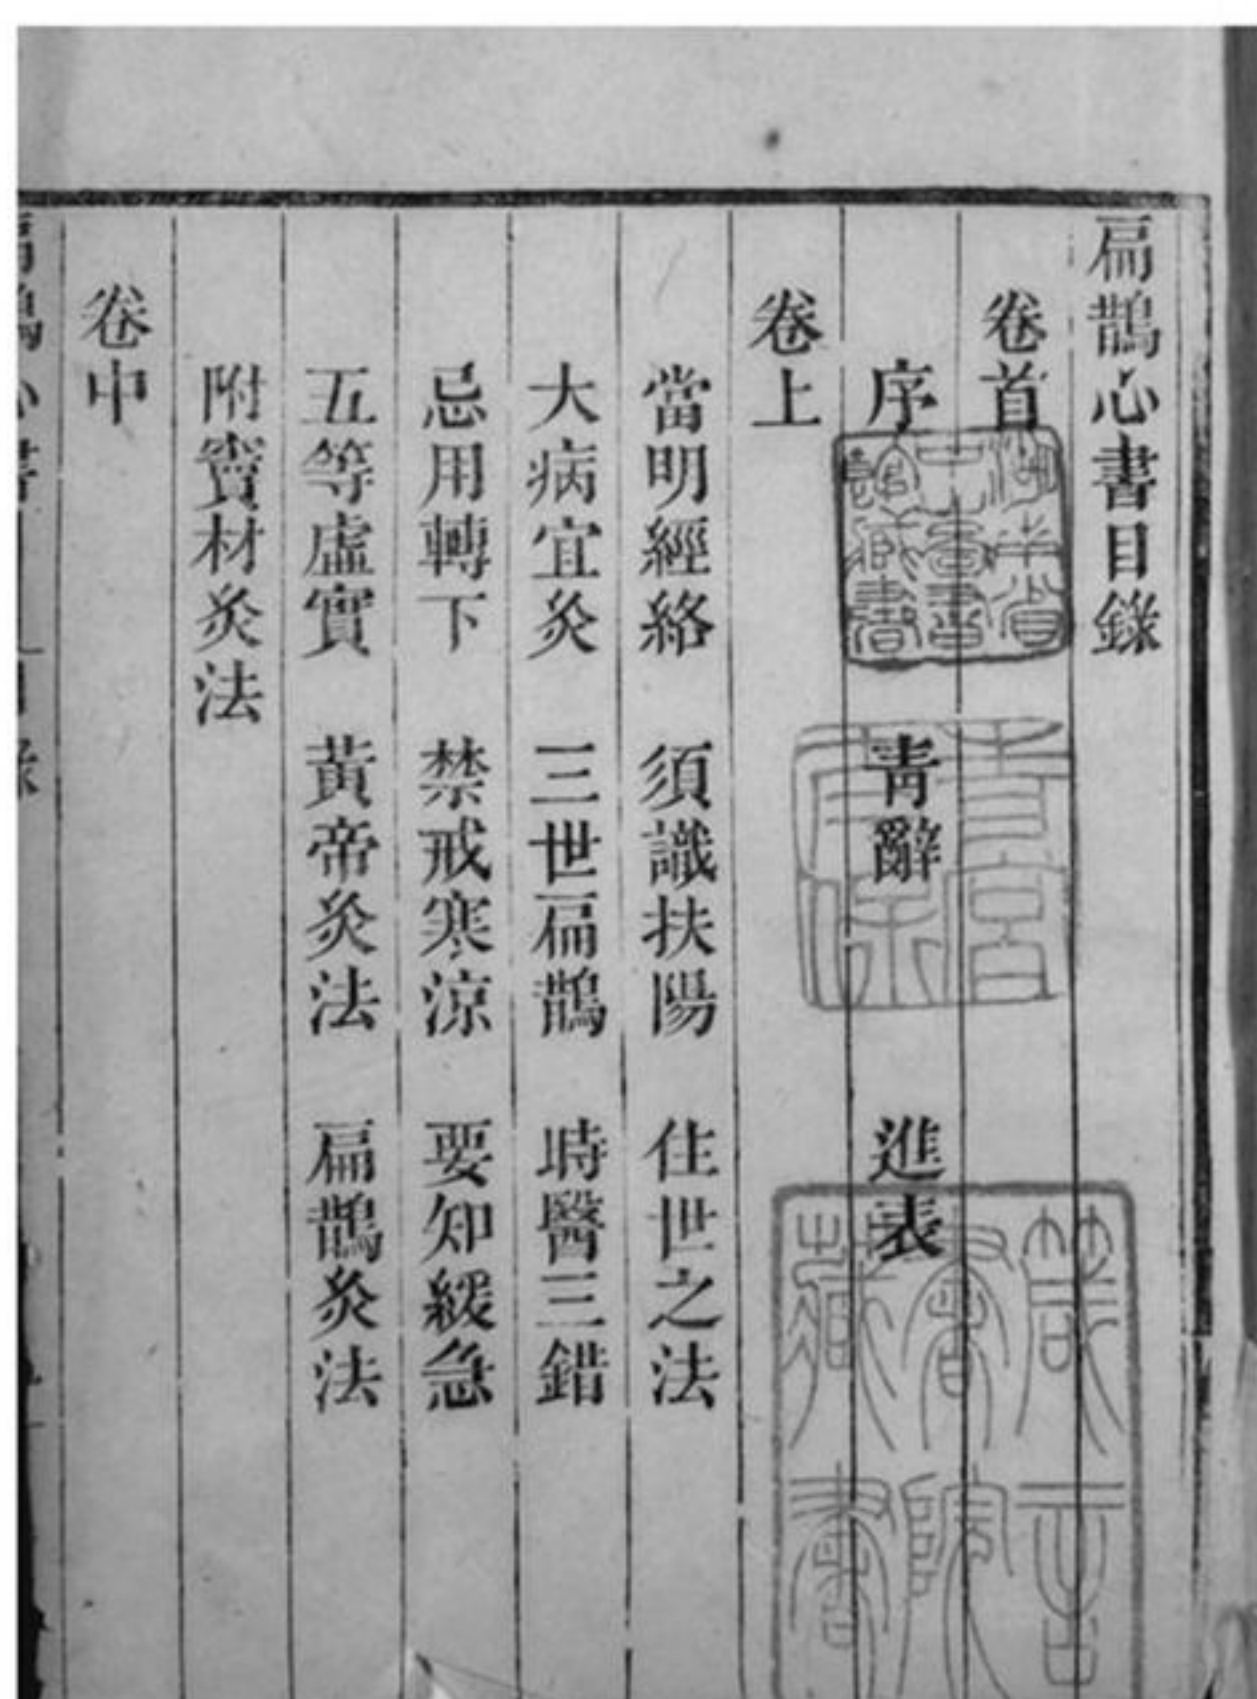 扁鵲心書目錄
卷首
序 青辭 進表
卷上
當明經絡 須識扶陽 住世之法
大病宜灸 三世扁鵲 時醫三錯
忌用轉下 禁戒寒涼 要知緩急
五等虛實 黃帝灸法 扁鵲灸法
附竇材灸法
卷中
箴言書院藏書